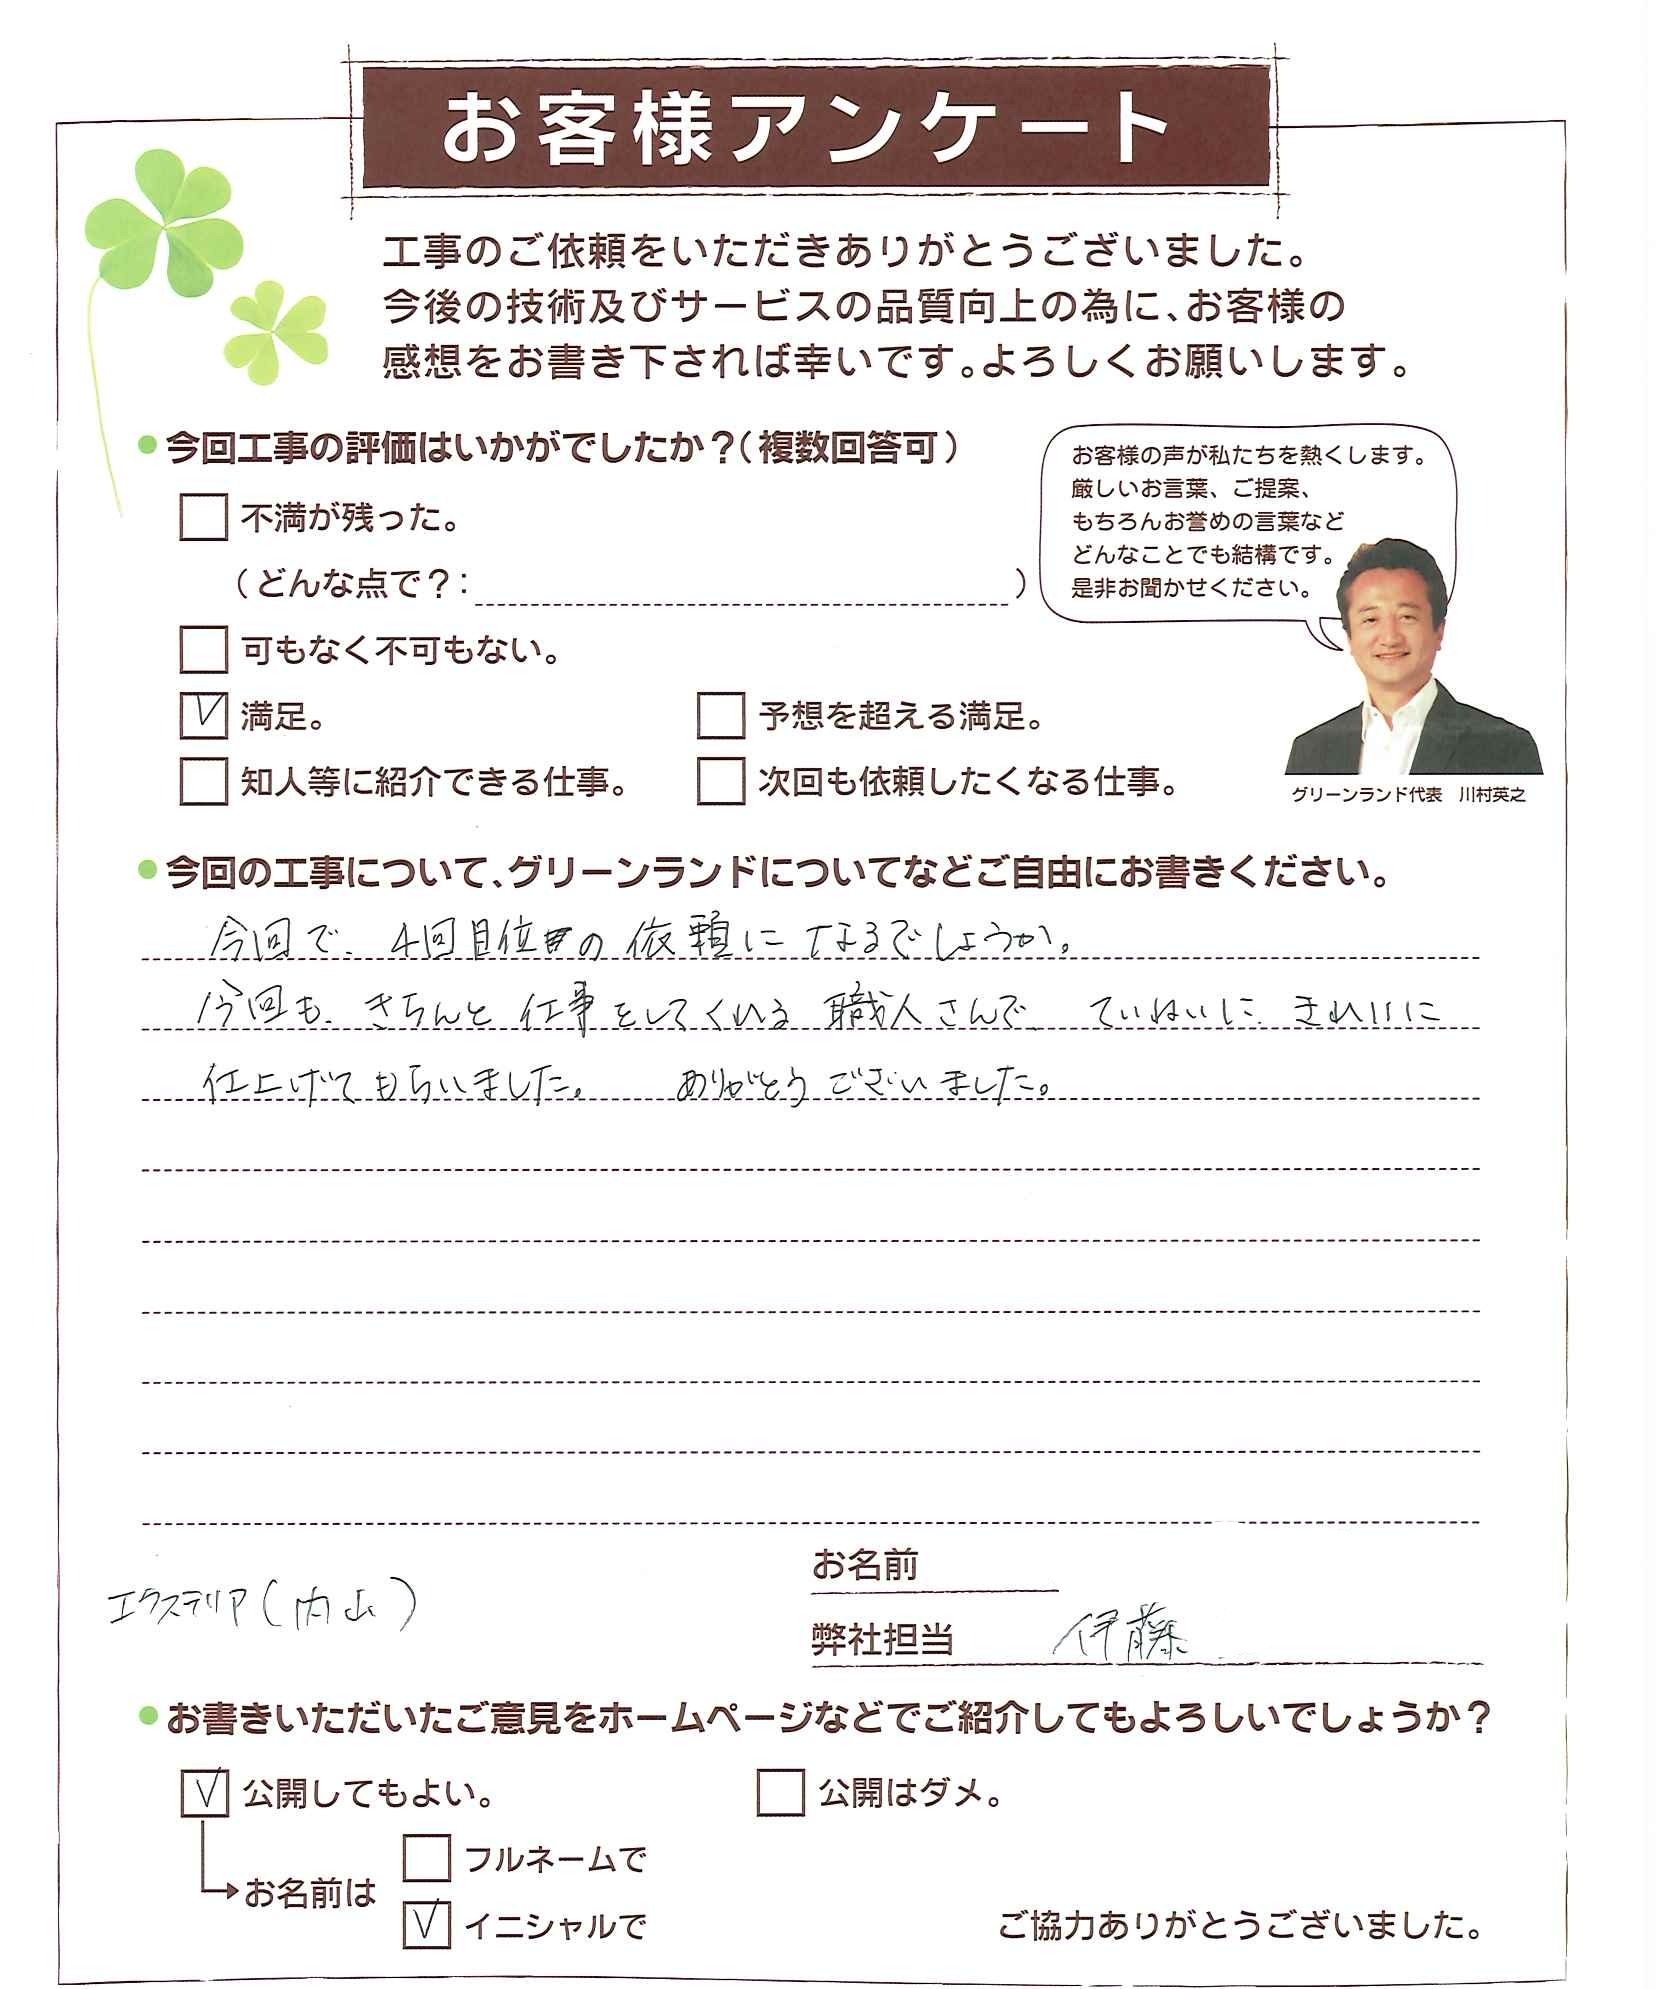 お客様アンケート
工事のご依頼をいただきありがとうございました。
今後の技術及びサービスの品質向上の為に、お客様の
感想をお書き下されば幸いです。よろしくお願いします。
●今回工事の評価はいかがでしたか？（複数回答可）
お客様の声が私たちを熱くします。
厳しいお言葉、ご提案、
もちろんお誉めの言葉など
どんなことでも結構です。
是非お聞かせください。
不満が残った。
（どんな点で？：　）
可もなく不可もない。
満足。
予想を超える満足。
知人等に紹介できる仕事。
次回も依頼したくなる仕事。
グリーンランド代表　川村英之
●今回の工事について、グリーンランドについてなどご自由にお書きください。
今回で、4回目位の依頼になるでしょうか。
今回も、きちんと仕事をしてくれる職人さんで ていねいに、きれいに
仕上げてもらいました。 ありがとうございました。
お名前
エクステリア(内山)
弊社担当 伊藤
●お書きいただいたご意見をホームページなどでご紹介してもよろしいでしょうか？
公開してもよい。
公開はダメ。
お名前は
フルネームで
イニシャルで
ご協力ありがとうございました。